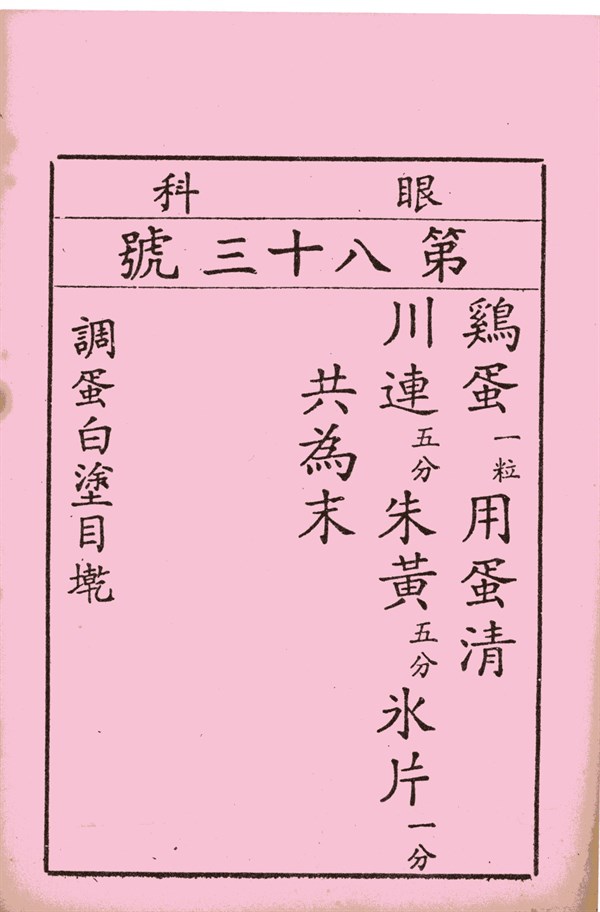 眼科
第八十三號
鷄蛋一粒用蛋清
川連五分朱黃五分氷片一分
共為末
調蛋白塗目墘